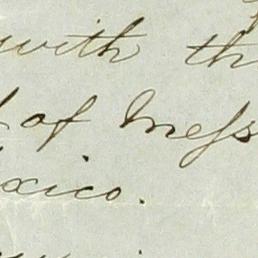 with th
of Mess
xico.